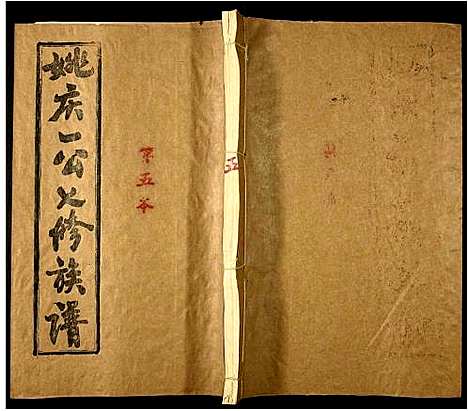 姚庆一公七修族谱
第五本
五